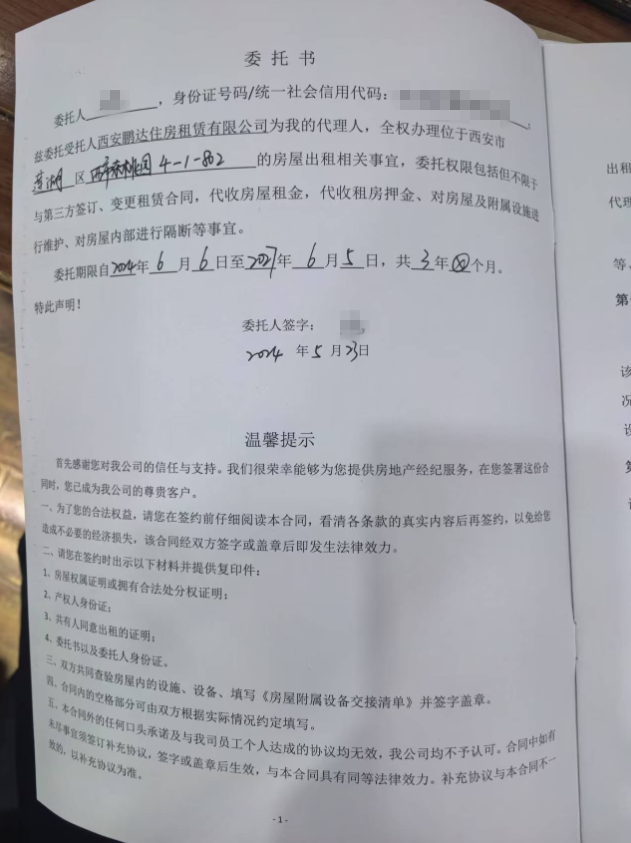 委托书
委托人，身份证号码/统一社会信用代码：
兹委托受托人西安鹏达住房租赁有限公司为我的代理人，全权办理位于西安市
莲湖区 桃园4-1-802 的房屋出租相关事宜，委托权限包括但不限于
与第三方签订、变更租赁合同，代收房屋租金，代收租房押金、对房屋及附属设施进
行维护、对房屋内部进行隔断等事宜。
委托期限自2024年6月6日至2027年6月5日，共3年⊗个月。
特此声明！
委托人签字：
2024年5月23日
温馨提示
首先感谢您对我公司的信任与支持。我们很荣幸能够为您提供房地产经纪服务，在您签署这份合
同时，您已成为我公司的尊贵客户。
一、为了您的合法权益，请您在签约前仔细阅读本合同，看清各条款的真实内容后再签约，以免给您
造成不必要的经济损失，该合同经双方签字或盖章后即发生法律效力。
二、请您在签约时出示以下材料并提供复印件：
1、房屋权属证明或拥有合法处分权证明；
2、产权人身份证；
3、共有人同意出租的证明；
4、委托书以及委托人身份证。
三、双方共同查验房屋内的设施、设备、填写《房屋附属设备交接清单》并签字盖章。
四、合同内的空格部分可由双方根据实际情况约定填写。
五、本合同外的任何口头承诺及与我司员工个人达成的协议均无效，我公司均不予认可。合同中如有
未尽事宜须签订补充协议，签字或盖章后生效，与本合同具有同等法律效力。补充协议与本合同不一
致的，以补充协议为准。
-1-
出租
代理
等、
第
该
况
设